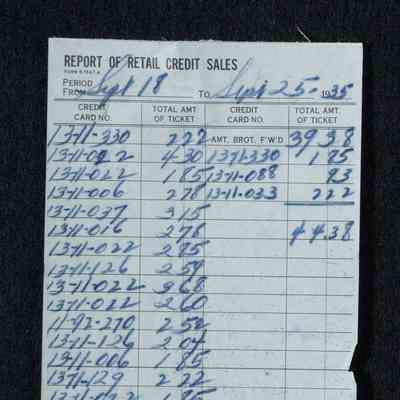 REPORT OF RETAIL CREDIT SALES
PERIOD
FROM Sept 18 TO Sept 25 - 1935
CREDIT CARD NO. TOTAL AMT. OF TICKET CREDIT CARD NO. TOTAL AMT. OF TICKET
13-11-330 222 AMT. BROT. F'W'D 39 38
13-11-022 430 1371-330 185
13-11-022 185 13-11-088 83
13-11-006 278 13-11-033 222
13-11-037 315
13-11-016 278 44.38
13-11-022 285
13-11-126 259
13-11-022 368
13-11-022 260
11-92-270 252
13-11-126 204
13-11-006 185
1371-129 222